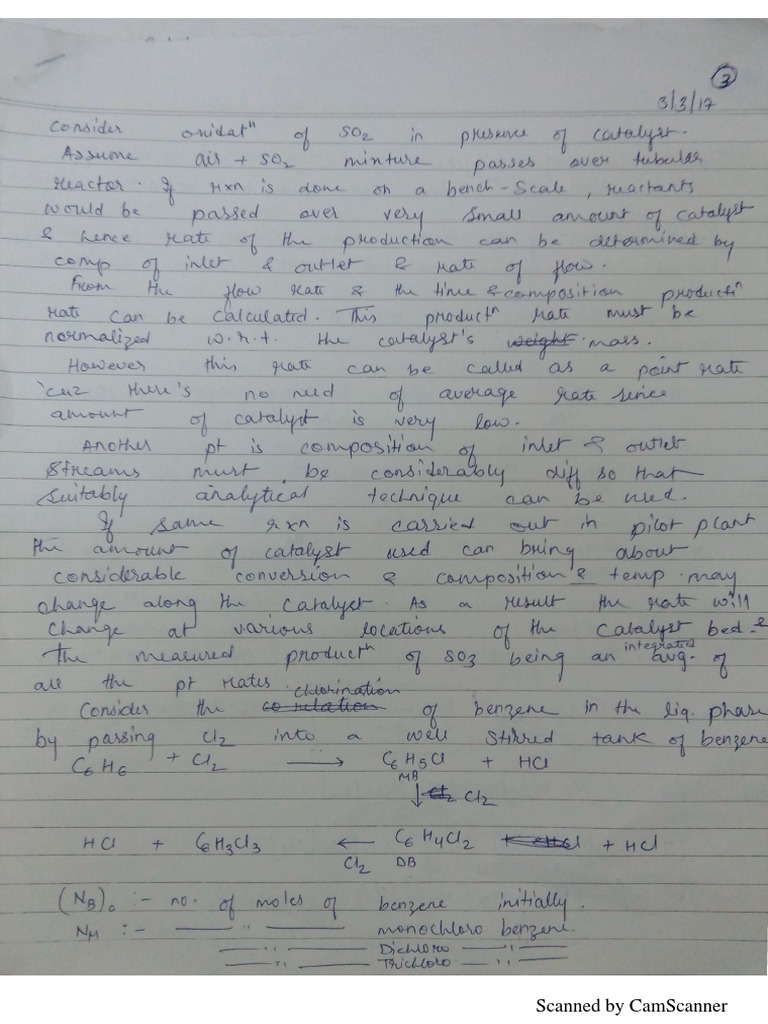 3
3/3/17
Consider oxidatⁿ of SO2 in presence of catalyst.
Assume air + SO2 mixture passes over tubular
reactor. If rxn is done on a bench-scale, reactants
would be passed over very small amount of catalyst
& hence rate of the production can be determined by
comp of inlet & outlet & rate of flow.
From the flow rate & the time & composition productⁿ
rate can be calculated. This productⁿ rate must be
normalized w.r.t. the catalyst's weight mass.
However this rate can be called as a point rate
'cuz there's no need of average rate since
amount of catalyst is very low.
Another pt is composition of inlet & outlet
streams must be considerably diff so that
suitably analytical technique can be used.
If same rxn is carried out in pilot plant
the amount of catalyst used can bring about
considerable conversion & composition & temp. may
change along the catalyst. As a result the rate will
change at various locations of the catalyst bed &
the measured productⁿ of SO3 being an integrated avg. of
all the pt rates.
Consider the chlorination of benzene in the liq. phase
by passing Cl2 into a well stirred tank of benzene
C6H6 + Cl2 ⟶ C6H5Cl + HCl
MB
↓ Cl2
HCl + C6H3Cl3 ← C6H4Cl2 + HCl
Cl2 DB
(NB)₀ :- no. of moles of benzene initially.
NM :- —— " —— monochloro benzene.
—— " —— Dichloro —— " ——
—— " —— Trichloro —— " ——
Scanned by CamScanner